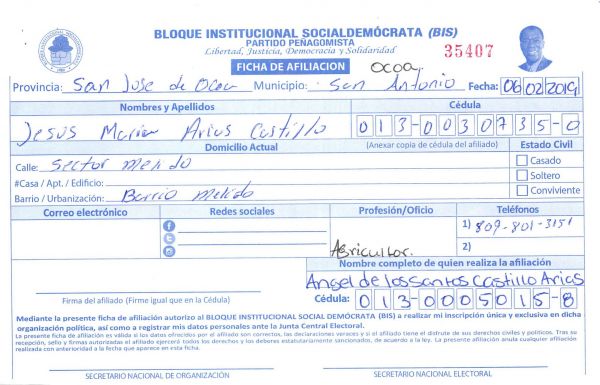 BLOQUE INSTITUCIONAL SOCIALDEMÓCRATA (BIS)
PARTIDO PEÑAGOMISTA
Libertad, Justicia, Democracia y Solidaridad
35407
FICHA DE AFILIACION
Ocoa.
Provincia: San Jose de Ocoa Municipio: San Antonio Fecha: 06 02 2019
Nombres y Apellidos Cédula
Jesus Maria Arias Castillo 013-0030735-0
Domicilio Actual (Anexar copia de cédula del afiliado) Estado Civil
Calle: Sector melido Casado
#Casa / Apt. / Edificio: Soltero
Barrio / Urbanización: Barrio Melido Conviviente
Correo electrónico Redes sociales Profesión/Oficio Teléfonos
1) 809-801-3151
Agricultor. 2)
Nombre completo de quien realiza la afiliación
Angel de los Santos Castillo Arias
Firma del afiliado (Firme igual que en la Cédula) Cédula: 013-0005015-8
Mediante la presente ficha de afiliación autorizo al BLOQUE INSTITUCIONAL SOCIAL DEMÓCRATA (BIS) a realizar mi inscripción única y exclusiva en dicha
organización política, así como a registrar mis datos personales ante la Junta Central Electoral.
La presente ficha de afiliación es válida si los datos ofrecidos por el afiliado son correctos, las declaraciones veraces y si el afiliado tiene el disfrute de sus derechos civiles y políticos. Tras su
recepción, sello y firmas autorizadas el afiliado ejercerá todos los derechos y los deberes estatutariamente sancionados, de acuerdo a la ley. La presente afiliación anula cualquier afiliación
realizada con anterioridad a la fecha que aparece en esta ficha.
SECRETARIO NACIONAL DE ORGANIZACIÓN SECRETARIO NACIONAL ELECTORAL